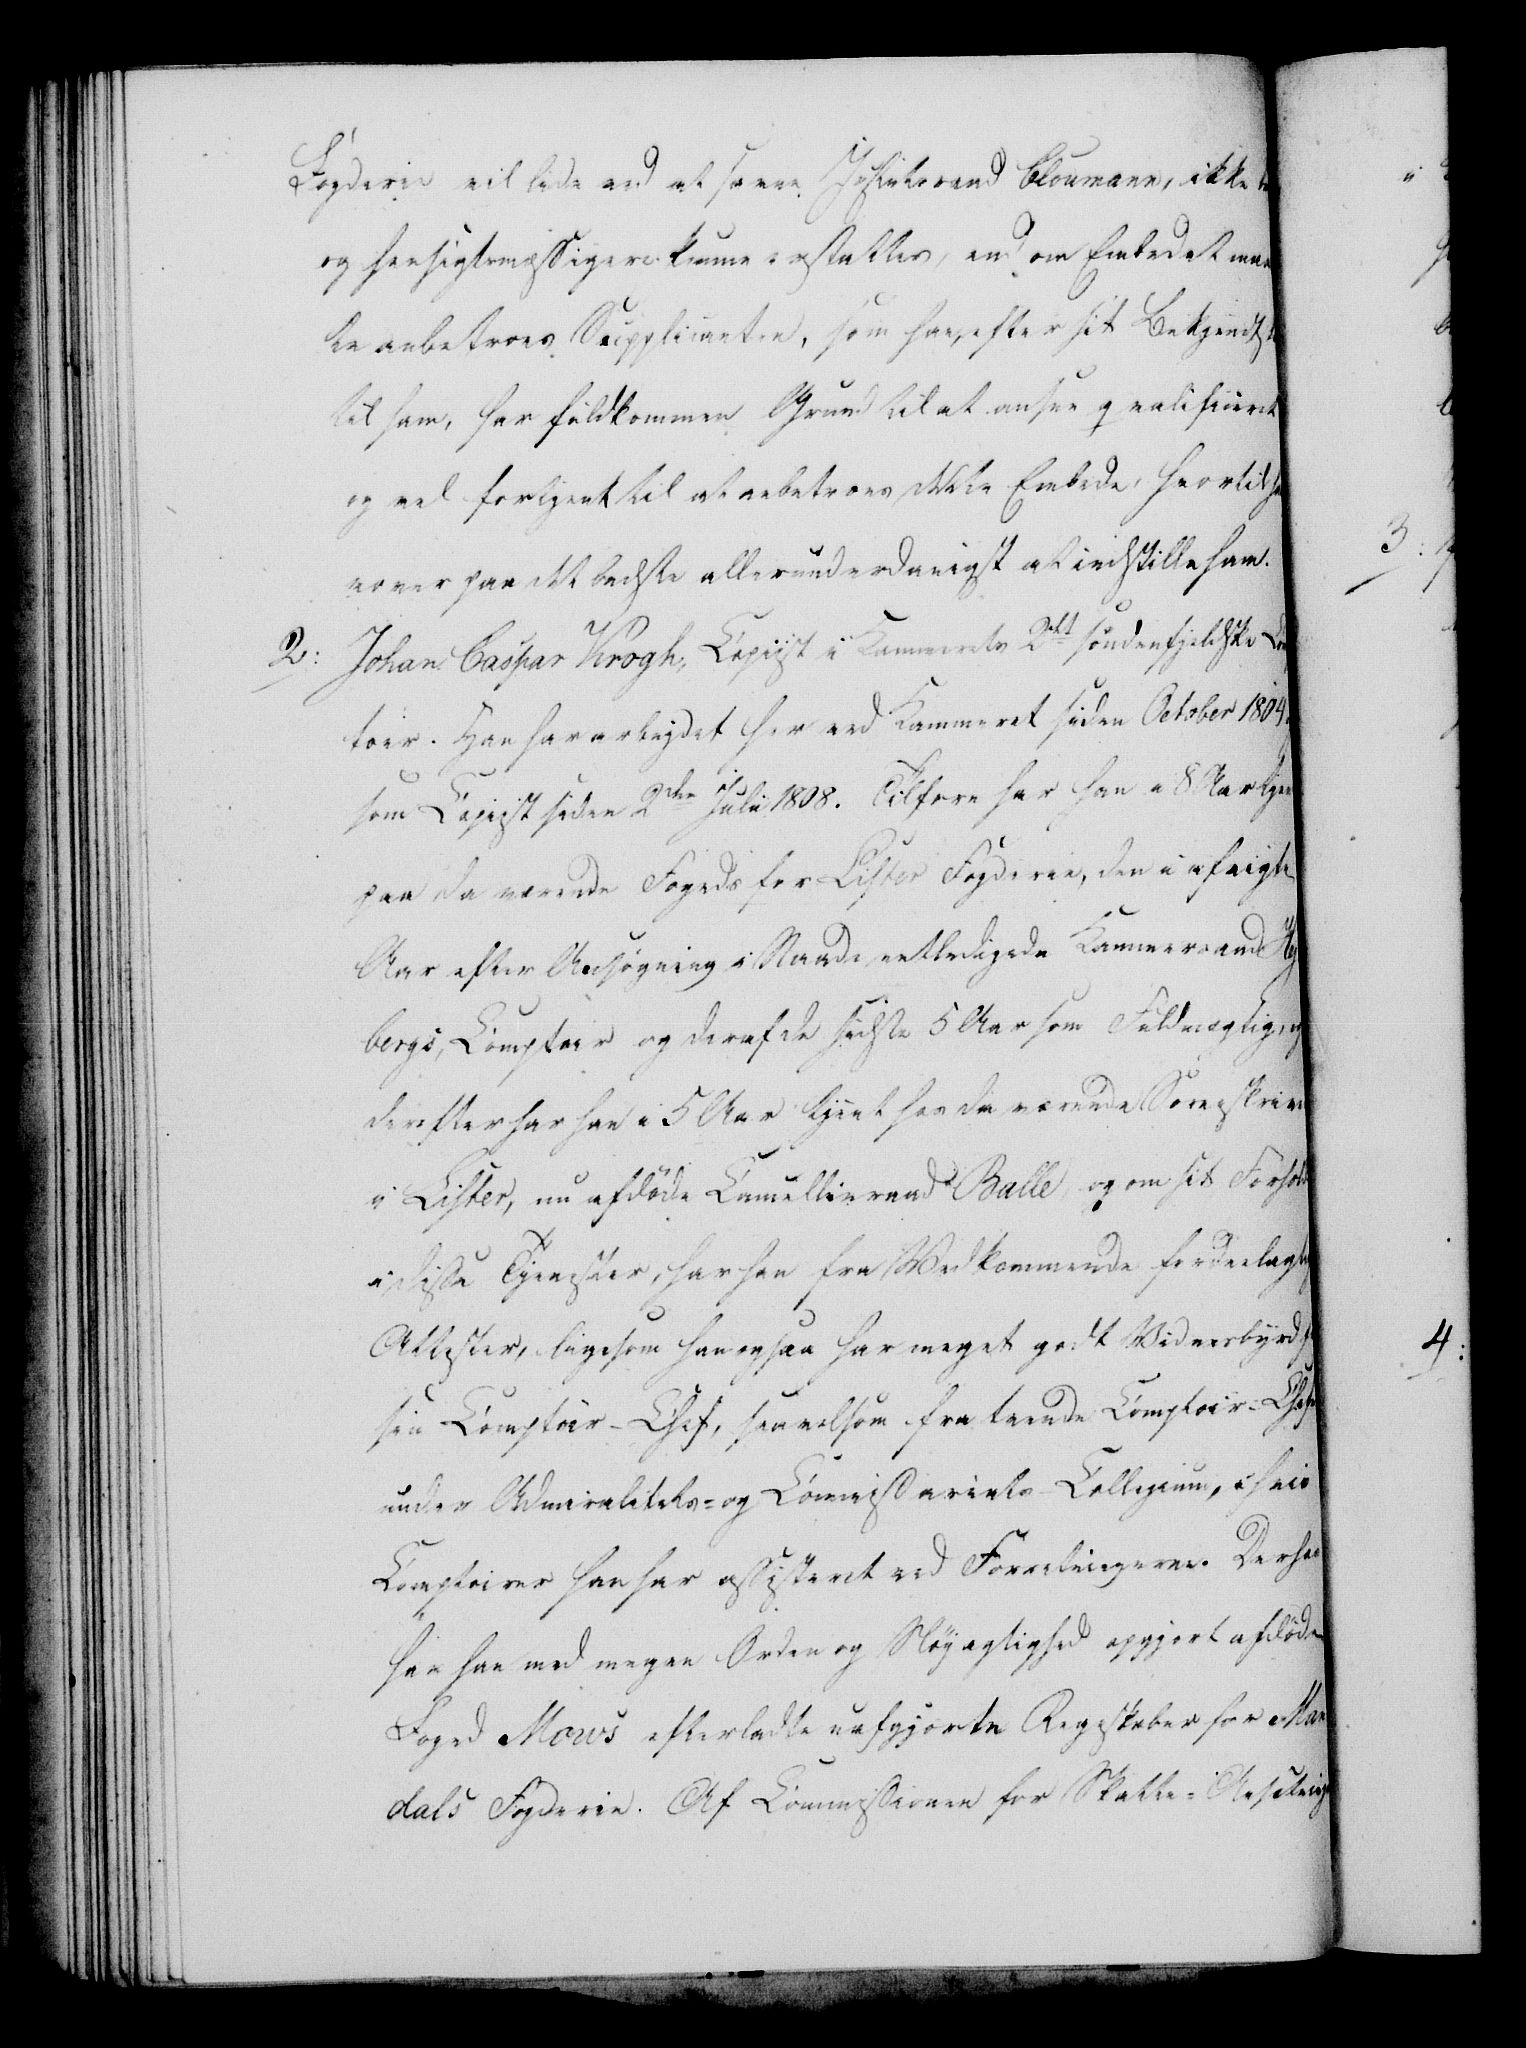 Fogderie vil lide ved at savne Justitsraad Cloumann, ikke
og hensigtsmæssigere kunne erstattes, end om Embedet maa
be anbetroes Supplicanten, som han, efter sit Bekjendtsk
til ham, har fuldkommen Grund til at ansee qvalificeret
og vel fortjent til at anbetroes dette Embede, hvortil ha
vover paa det bedste allerunderdanigst at indstille ham.
2: Johan Caspar Krogh, Copiist i Kammerets 2det søndenfjeldske Com
toir. Han har arbejdet her ved Kammeret siden October 1804,
som Copiist siden 2den Juli 1808. Tilforn har han i 8 Aar tjen
paa da værende Fogeds for Lister Fogderie, den i afvigte
Aar efter Ansøgning i Naade entledigede Kammerraad
bergs, Comptoir og deraf de sidste 5 Aar som Fuldmægtig, og
derefter har han i 5 Aar tjent hos da værende Sorenskriver
i Lister, nu afdøde Cancellieraad Balle, og om sit Forhold
i disse Tjenester, har han fra Vedkommende fordeelagtig
Attester, ligesom han ogsaa har meget godt Vidnesbyrd fr
sin Comptoir-Chef, saavelsom fra tvende Comptoir-Chefer
under Admiralitets- og Commissariats-Collegium, i hvis
Comptoirer han har assisteret ved Forretningerne. Derhos
har han med megen Orden og Nøjagtighed opgjort afdøde
Foged Mows efterladte uafgjorte Regnskaber for Man
dals Fogderie. Af Commissionen for Skatte-Ansætning
3:
4: